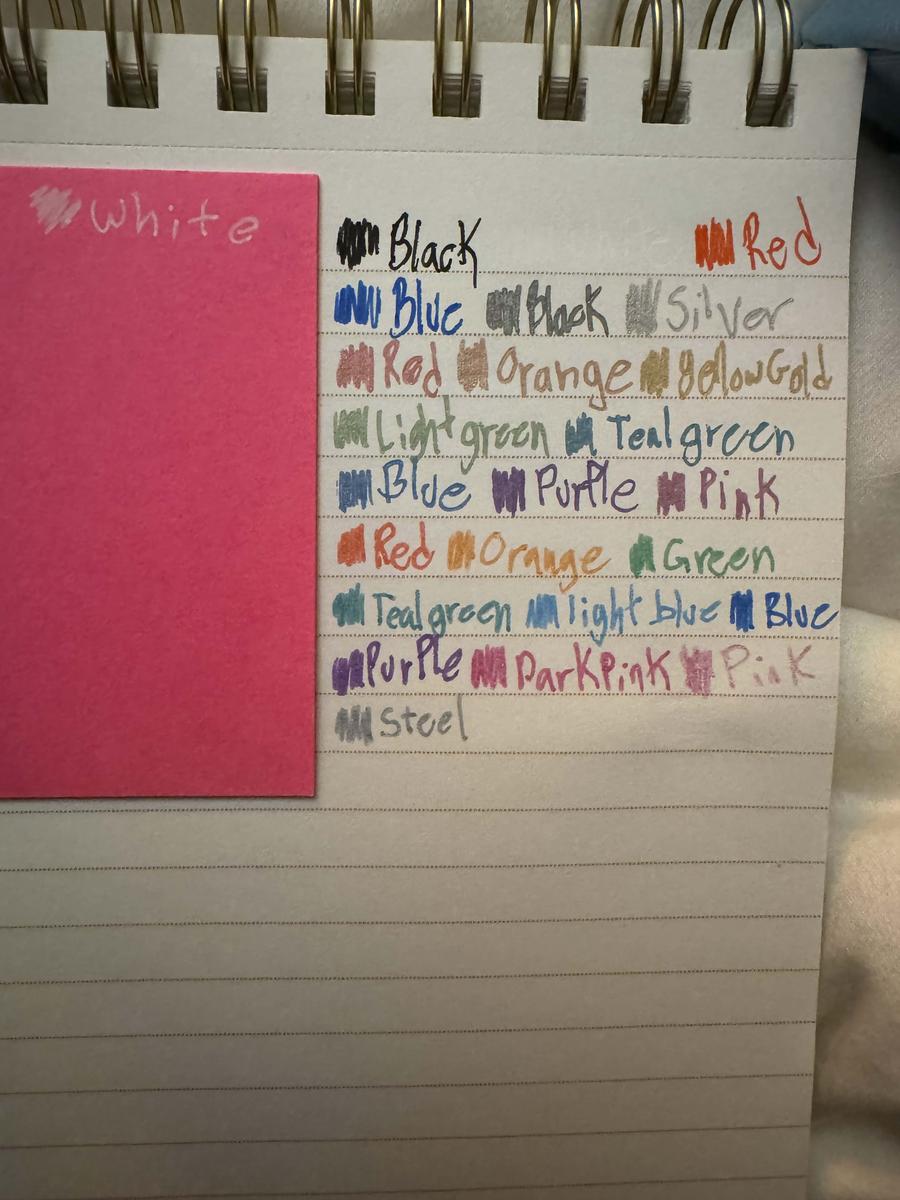 White
Black Red
Blue Black Silver
Red Orange YellowGold
Lightgreen Tealgreen
Blue Purple Pink
Red Orange Green
Tealgreen light blue Blue
Purple DarkPink Pink
Steel